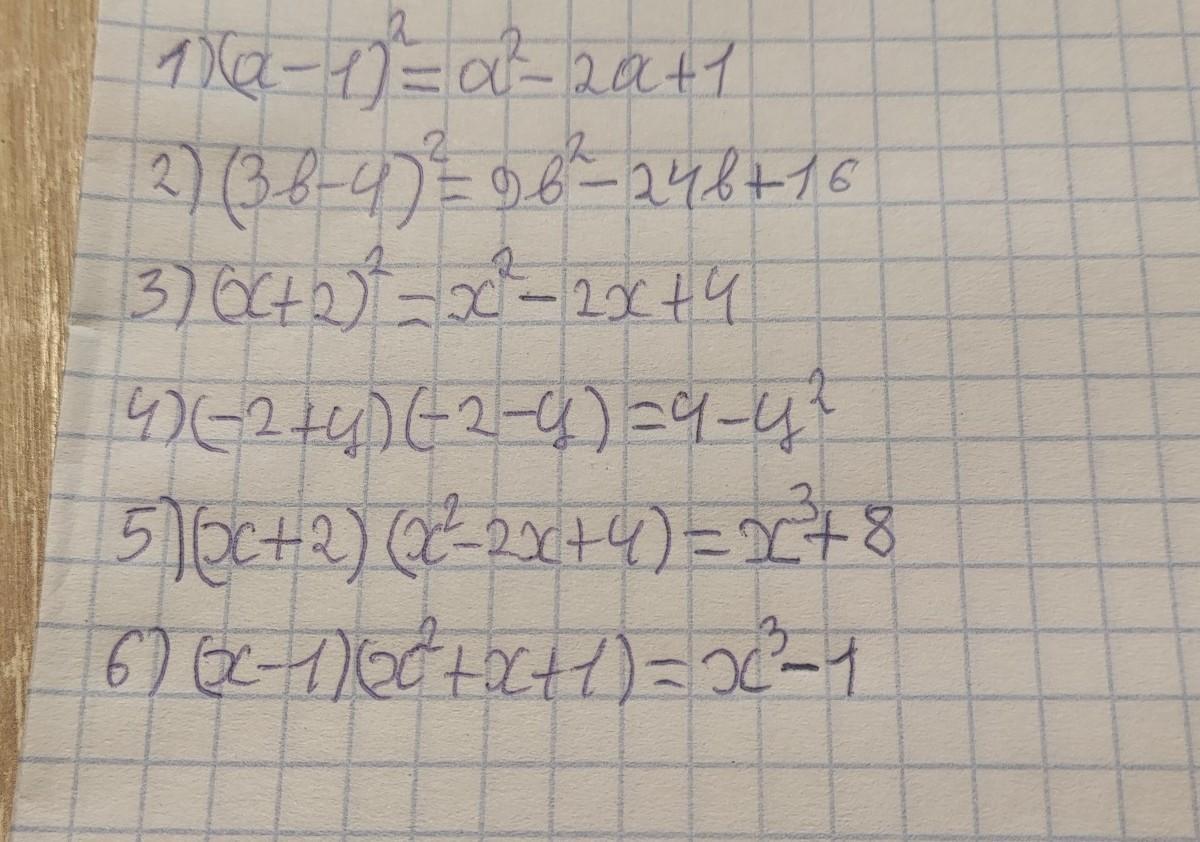 1) (a-1)² = a² - 2a + 1
2) (3b-4)² = 9b² - 24b + 16
3) (x+2)² = x² - 2x + 4
4) (-2+y)(-2-y) = 4 - y²
5) (x+2)(x²-2x+4) = x³ + 8
6) (x-1)(x²+x+1) = x³ - 1